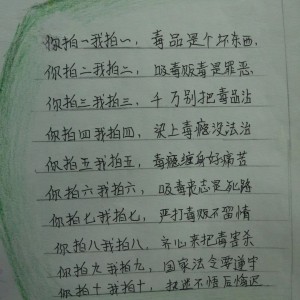 你拍一我拍一，毒品是个坏东西，
你拍二我拍二，吸毒贩毒是罪恶，
你拍三我拍三，千万别把毒品沾
你拍四我拍四，染上毒瘾没法治
你拍五我拍五，毒瘾缠身好痛苦
你拍六我拍六，吸毒丧志是死路
你拍七我拍七，严打毒贩不留情
你拍八我拍八。齐心来把毒害杀
你拍九我拍九，国家法令要遵守
你拍十我拍十，执迷不悟后悔迟